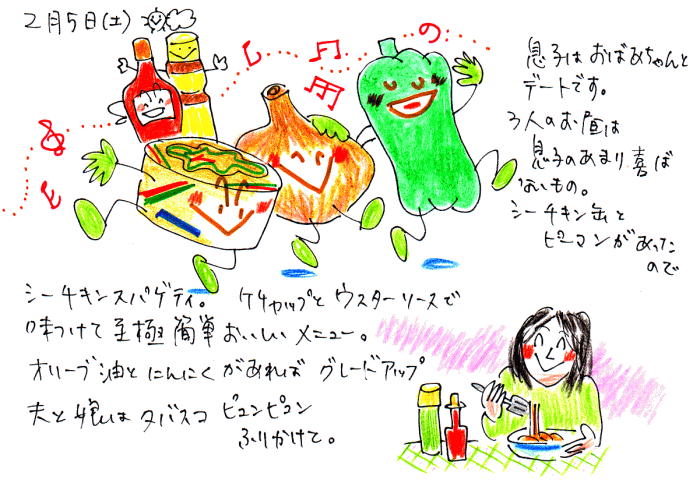 2月5日(土)
息子はおばあちゃんと
デートです。
3人のお昼は
息子のあまり喜ば
ないもの。
シーチキン缶と
ピーマンがあった
ので
シーチキンスパゲティ。 ケチャップとウスターソースで
味つけて至極簡単おいしいメニュー。
オリーブ油とにんにくがあれば グレードアップ
夫と娘は タバスコ ピュンピュン
ふりかけて。